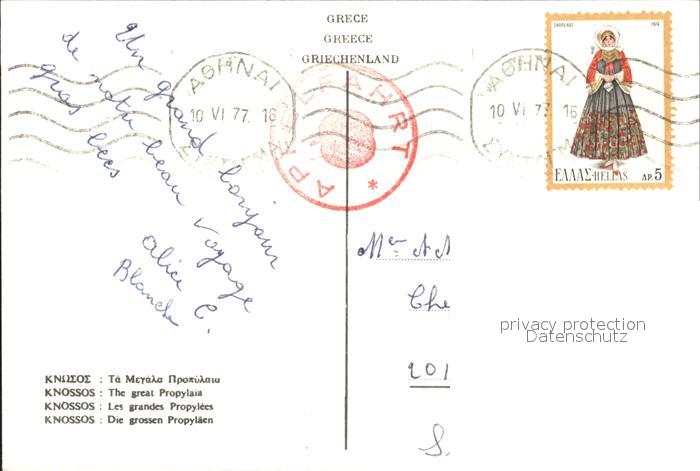 GRECE
GREECE
GRIECHENLAND
Un grand bonjour
de notre beau voyage
gros becs
Alice C.
Blanche
ΑΘΗΝΑΙ
10 VI 77. 16
ΣΥΝΤΑΓΜΑ
APRILFAHRT *
ΑΘΗΝΑΙ
10 VI 77. 16
ΣΥΝΤΑΓΜΑ
1974
ΕΛΛΑΣ-HELLAS
ΔΡ. 5
Che
201
S.
privacy protection
Datenschutz
ΚΝΩΣΟΣ : Τά Μεγάλα Προπύλαια
KNOSSOS : The great Propylaia
KNOSSOS : Les grandes Propylées
KNOSSOS : Die grossen Propyläen